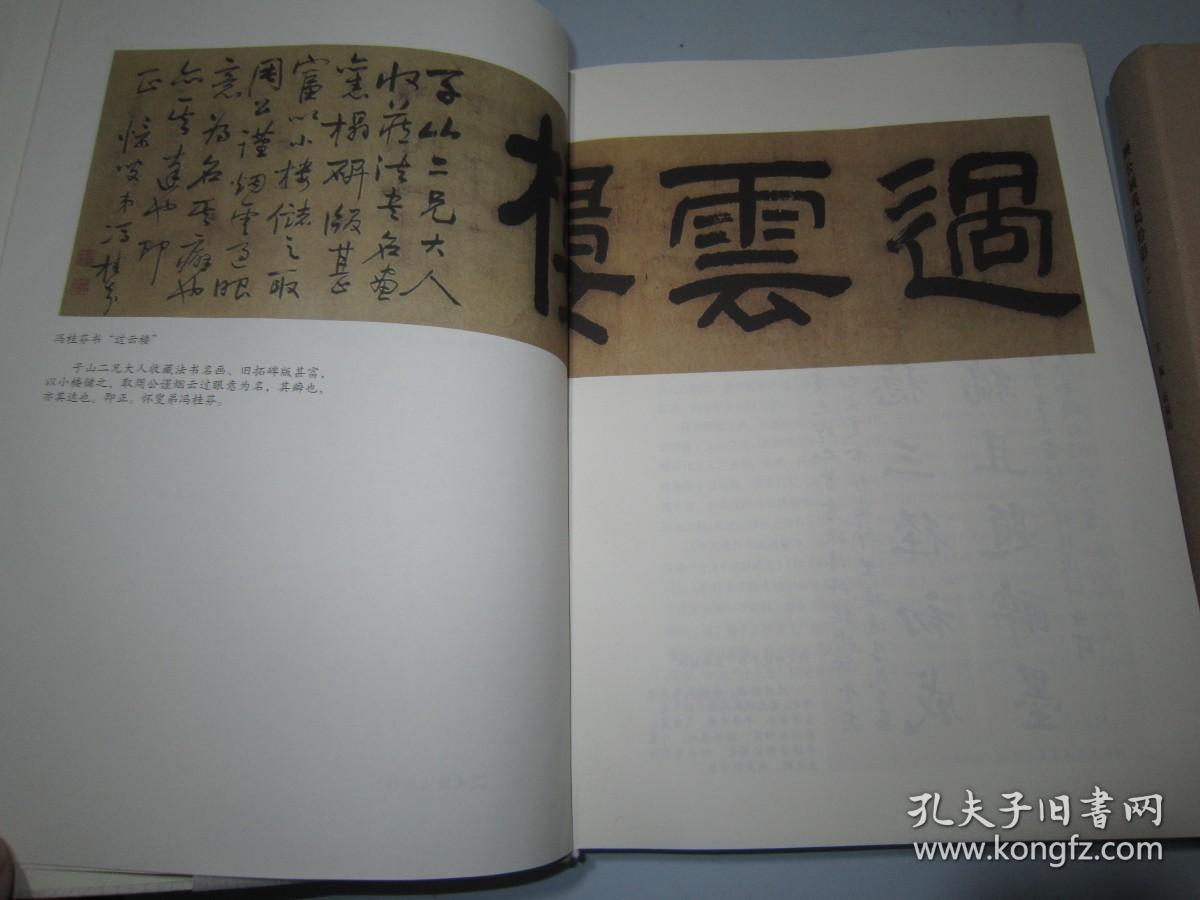 過雲樓
子山二兄大人
收藏法書名畫
舊榻碑版甚
富以小樓儲之取
周公謹烟雲過眼
意為名其癖也
亦其達也即
正
懷叟弟馮桂芬
冯桂芬书“过云楼”
子山二兄大人收藏法书名画、旧拓碑版甚富，
以小楼储之，取周公谨烟云过眼意为名，其癖也，
亦其达也。即正。怀叟弟冯桂芬。
孔夫子旧书网
www.kongfz.com